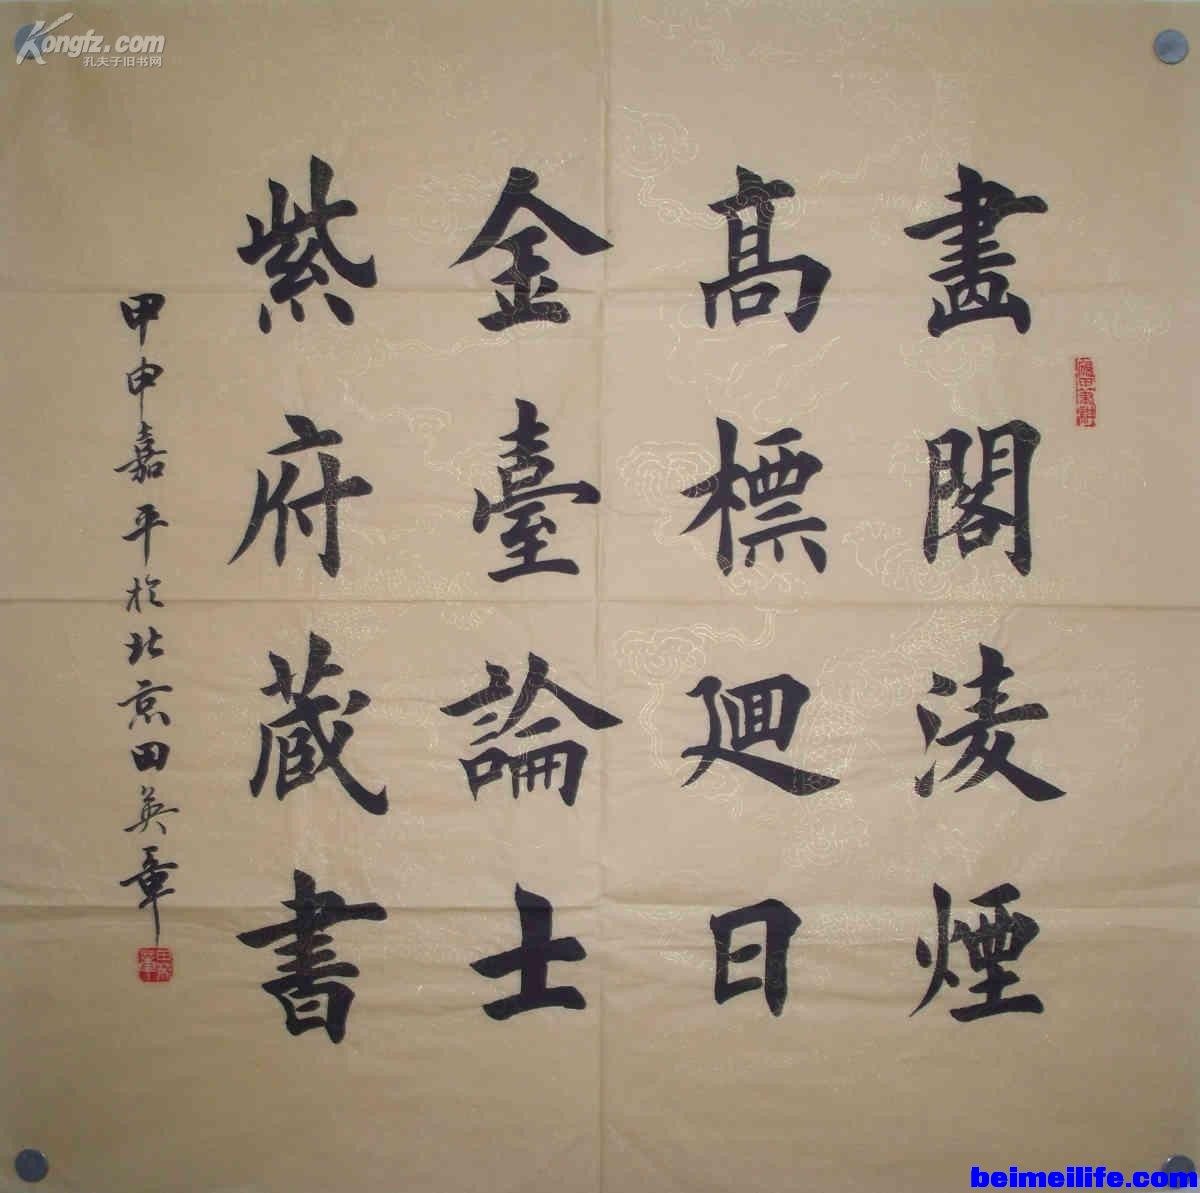 畫閣淩煙
高標迴日
金臺論士
紫府藏書
甲申嘉平於北京田英章
Kongfz.com
孔夫子旧书网
beimeilife.com